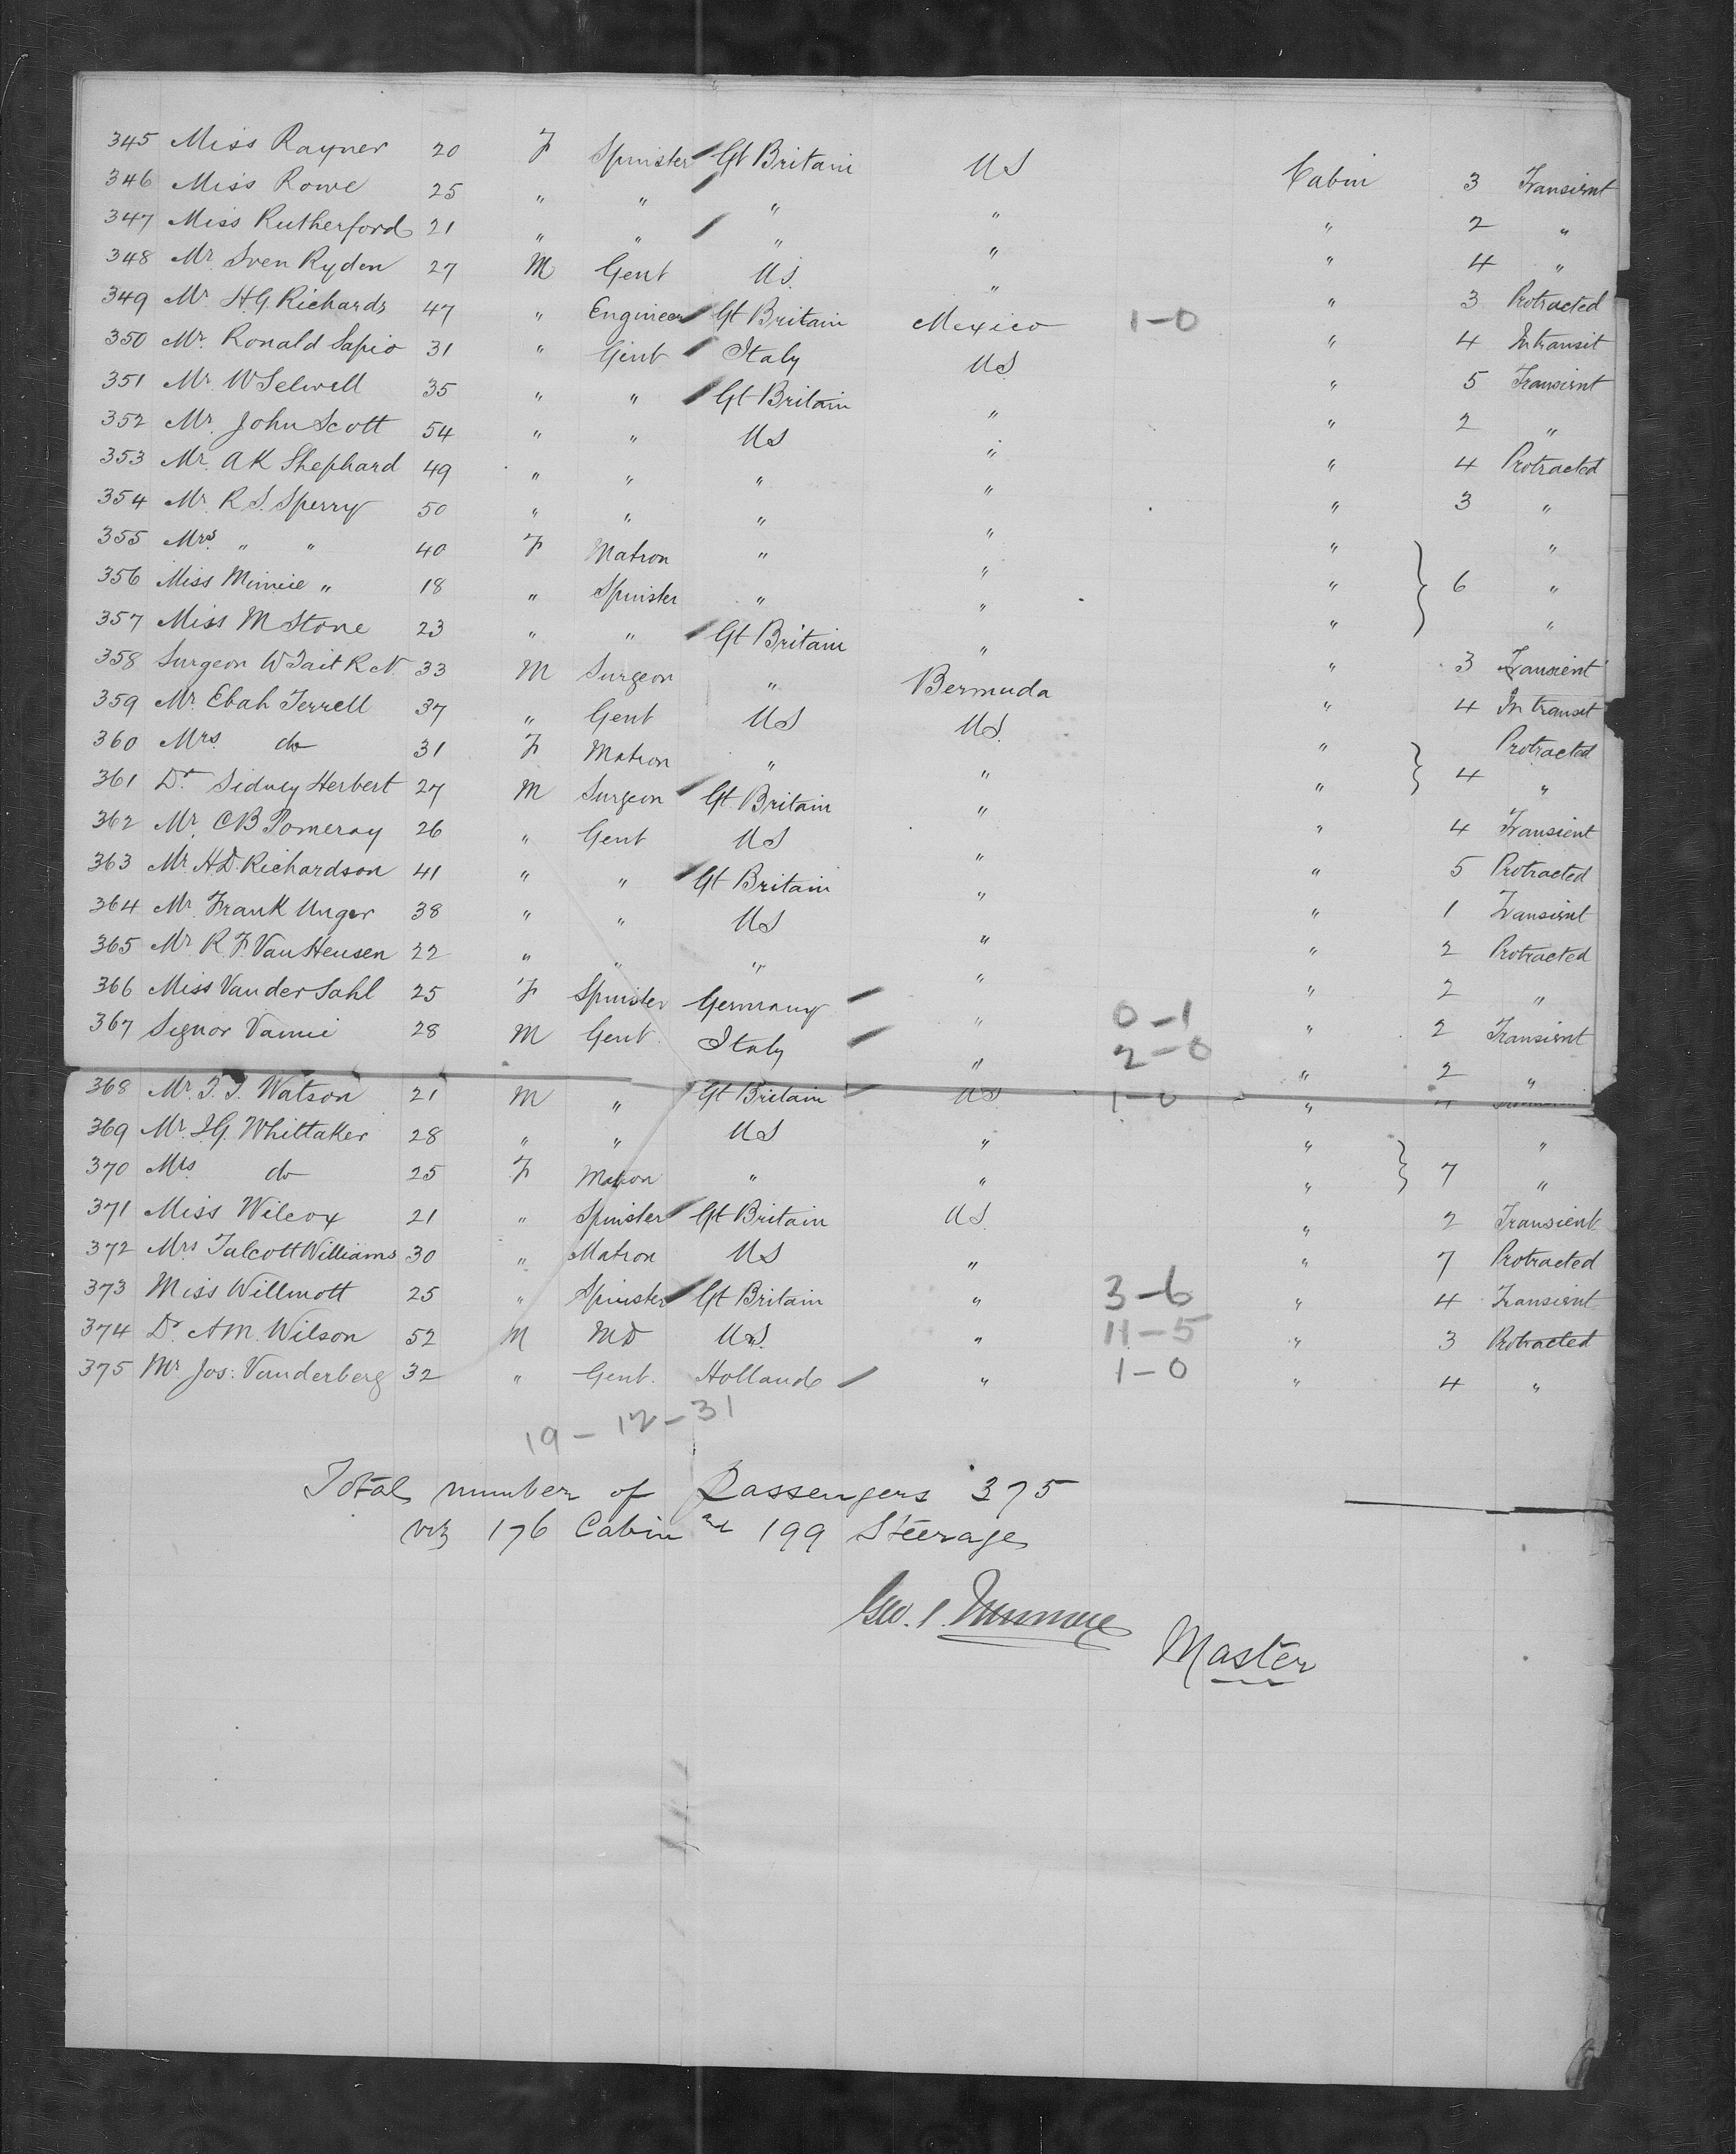 345 Miss Rayner 20 F Spinster Gt Britain US Cabin 3 Transient
346 Miss Rowe 25 " " " " " 2 "
347 Miss Rutherford 21 " " " " " 4 "
348 Mr Sven Ryden 27 M Gent US. " " 3 Protracted
349 Mr H.G. Richards 47 " Engineer Gt Britain Mexico 1-0 " 4 Intransit
350 Mr. Ronald Sapio 31 " Gent Italy US " 5 Transient
351 Mr W Selwell 35 " " Gt Britain " " 2 "
352 Mr. John Scott 54 " " US " " 4 Protracted
353 Mr. A K Shephard 49 " " " " " 3 "
354 Mr R S. Sperry 50 " " " " " "
355 Mrs " " 40 F Matron " " " 6 "
356 Miss " 18 " Spinster " " " "
357 Miss M Stone 23 " " Gt Britain " " 3 Transient
358 Surgeon W Tait R N. 33 M Surgeon " Bermuda " 4 In transit
359 Mr. Ebah Terrell 37 " Gent US US. " Protracted
360 Mrs do 31 F Matron " " " 4 "
361 Dr Sidney Herbert 27 M Surgeon Gt Britain " " 4 Transient
362 Mr. C B Pomeray 26 " Gent US " " 5 Protracted
363 Mr. H.D. Richardson 41 " " Gt Britain " " 1 Transient
364 Mr. Frank Unger 38 " " US " " 2 Protracted
365 Mr R. F. Van Heusen 22 " " " " " 2 "
366 Miss Vander Sahl 25 F Spinster Germany " 0-1 " 2 Transient
367 Signor 28 M Gent. Italy " 2-0 " 2 "
368 Mr. T. J. Watson 21 M " Gt Britain US 1-0 " 4
369 Mr. J.G. Whittaker 28 " " US " " 7 "
370 Mrs do 25 F Matron " " " "
371 Miss Wilcox 21 " Spinster Gt Britain US. " 2 Transient
372 Mrs Talcott Williams 30 " Matron US " " 7 Protracted
373 Miss Willmott 25 " Spinster Gt Britain " 3-6 " 4 Transient
374 Dr. A M. Wilson 52 M MD US. " 11-5 " 3 Protracted
375 Mr Jos: Vanderberg 32 " Gent. Holland " 1-0 " 4 "
19-12-31
Total number of Passengers 375
viz 176 Cabin and 199 Steerage
Master